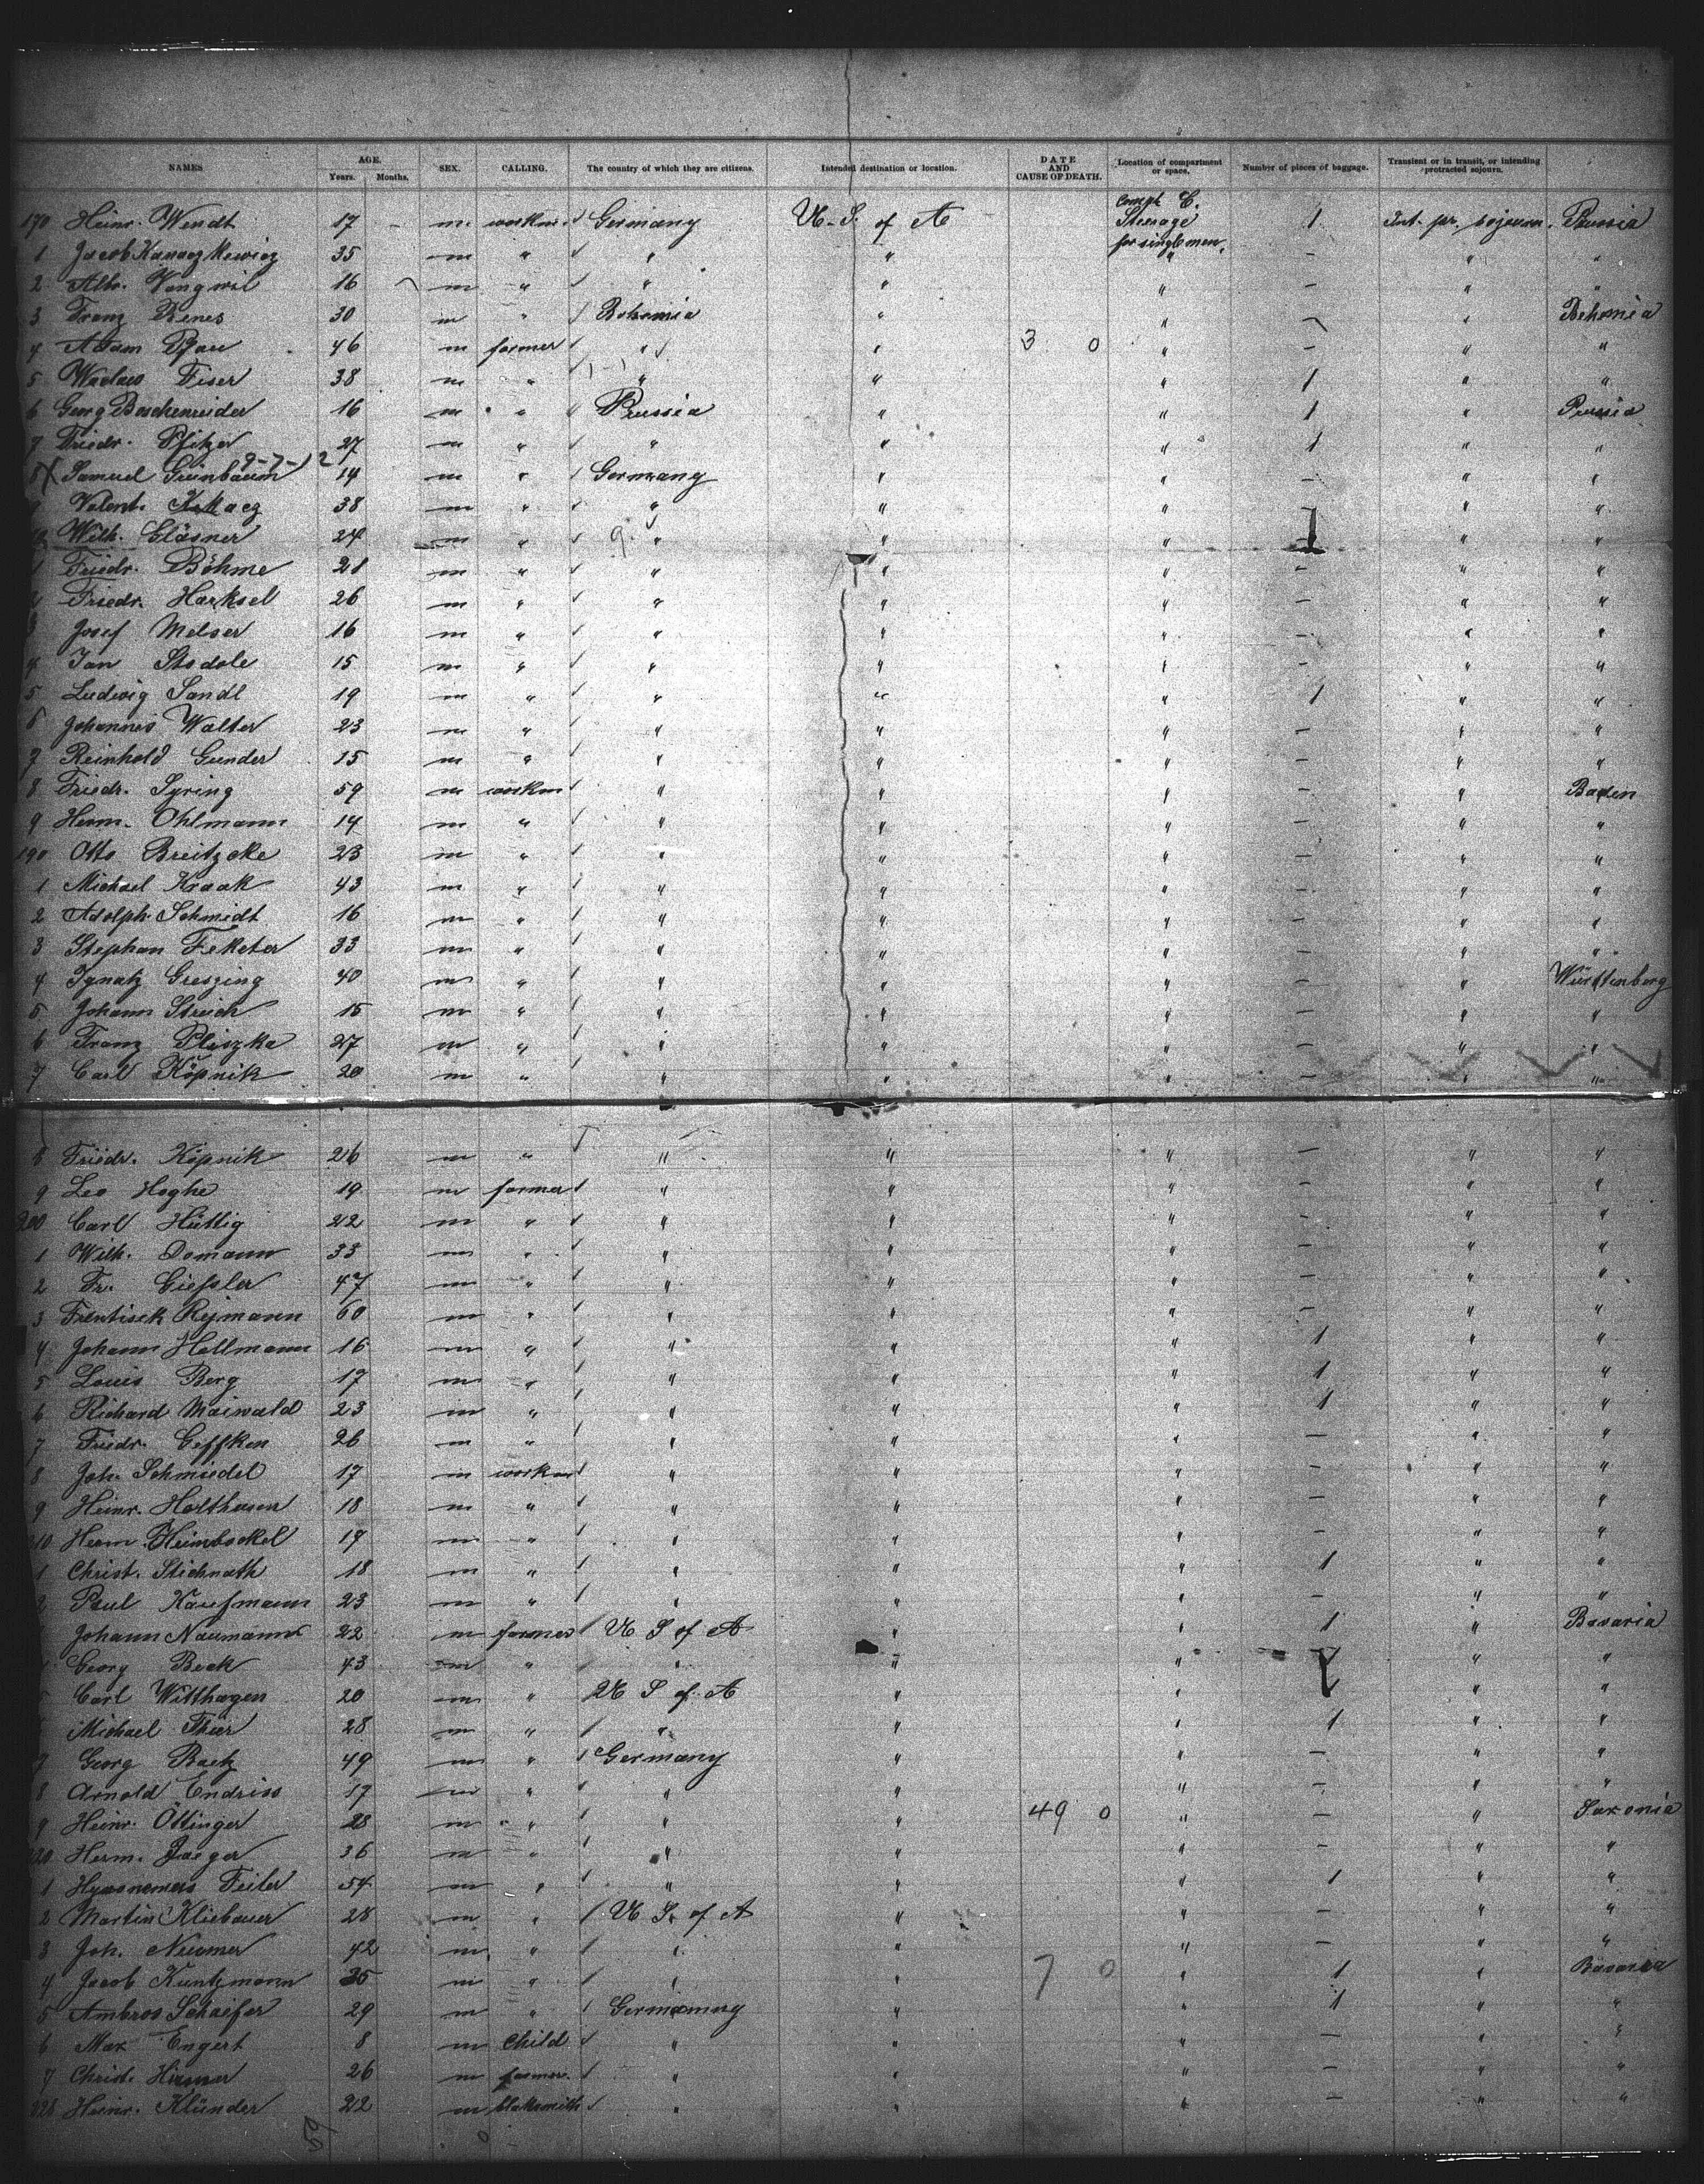 NAMES AGE. Years. Months. SEX. CALLING. The country of which they are citizens. Intended destination or location. DATE AND CAUSE OF DEATH. Location of compartment or space. Number of pieces of baggage. Transient or in transit, or intending protracted sojourn.
170 Heinr. Wendt 17 - m. workm. Germany U. S. of A Compt C. Steerage for single men. 1 Int. pr. sojourn. Prussia
1 Jacob 35 m " " " " - " "
2 16 m " " " " - " "
3 Franz Benes 30 m " Bohemia " " - " Bohemia
4 Adam 46 m farmer " " 3 0 " - " "
5 Fiser 38 m " " " " 1 " "
6 Georg 16 m " Prussia " " 1 " Prussia
7 Friedr. Pfitzer 27 m " " " " 1 " "
9-7-12
8 X Samuel Grünbaum 14 m " Germany " " - " "
9 Valent. 38 m " " " " - " "
Wilh. Gläsner 24 m " 9 " " " 1 " "
1 Friedr. Böhme 21 m " " " " - " "
2 Friedr. Harksel 26 m " " " " - " "
3 Josef Melser 16 m " " " " - " "
4 Jan Stodole 15 m " " " " - " "
5 Ludwig Sandl 19 m " " " " 1 " "
6 Johannes Walter 23 m " " " " - " "
7 Reinhold Gunder 15 m " " " " - " "
8 Friedr. Syring 59 m workm " " " - " Baden
9 Herm. Ohlmann 14 m " " " " - " "
190 Otto Breitzcke 23 m " " " " - " "
1 Michael Kraak 43 m " " " " - " "
2 Adolph Schmidt 16 m " " " " - " "
3 Stephan Feketer 33 m " " " " - " "
4 Ignatz Greszing 40 m " " " " - " Württenberg
5 Johann Streich 15 m " " " " - " "
6 Franz Pliszka 27 m " " " " - " "
7 Carl Köpnik 20 m " " " " - " "
8 Friedr. Köpnik 26 m " " " " - " "
9 Leo Hoghe 19 m farmer " " " - " "
200 Carl Hüttig 22 m " " " " - " "
1 Wilh. Domann 33 m " " " " - " "
2 Fr. Giessler 47 m " " " " - " "
3 Frentisek Rejmann 60 m " " " " - " "
4 Johann Hellmann 16 m " " " " 1 " "
5 Louis Berg 17 m " " " " 1 " "
6 Richard Maiwald 23 m " " " " 1 " "
7 Friedr. Geffken 26 m " " " " - " "
8 Joh. Schmiedel 17 m workm " " " - " "
9 Heinr. Holthusen 18 m " " " " - " "
210 Herm. Heimbockel 19 m " " " " - " "
1 Christ. Stichnath 18 m " " " " 1 " "
2 Paul Kaufmann 23 m " " " " - " "
Johann Naumann 22 m farmer U S of A " " 1 " Bavaria
Georg Beck 43 m " " " " " "
Carl Witthagen 20 m " U S of A " " 1 " "
Michael Thier 28 m " " " " 1 " "
7 Georg Baetz 49 m " Germany " " - " "
8 Arnold Endriss 17 m " " " " - " "
9 Heinr. Öttinger 28 m " " " 49 0 " - " Saxonia
220 Herm. Jaeger 36 m " " " " - " "
1 Feiler 54 m " " " " 1 " "
2 Martin Kliebauer 28 m " U S. of A " " - " "
3 Joh. 42 m " " " " - " "
4 Jacob Kuntzmann 35 m " " " 7 0 " 1 " Bavaria
5 Ambros Schaifer 29 m " Germany " " 1 " "
6 Max Engert 8 m child " " " - " "
7 Christ. 26 m farmer. " " " - " "
228 Heinr. Klünder 22 m blaksmith " " " - " "
59 0